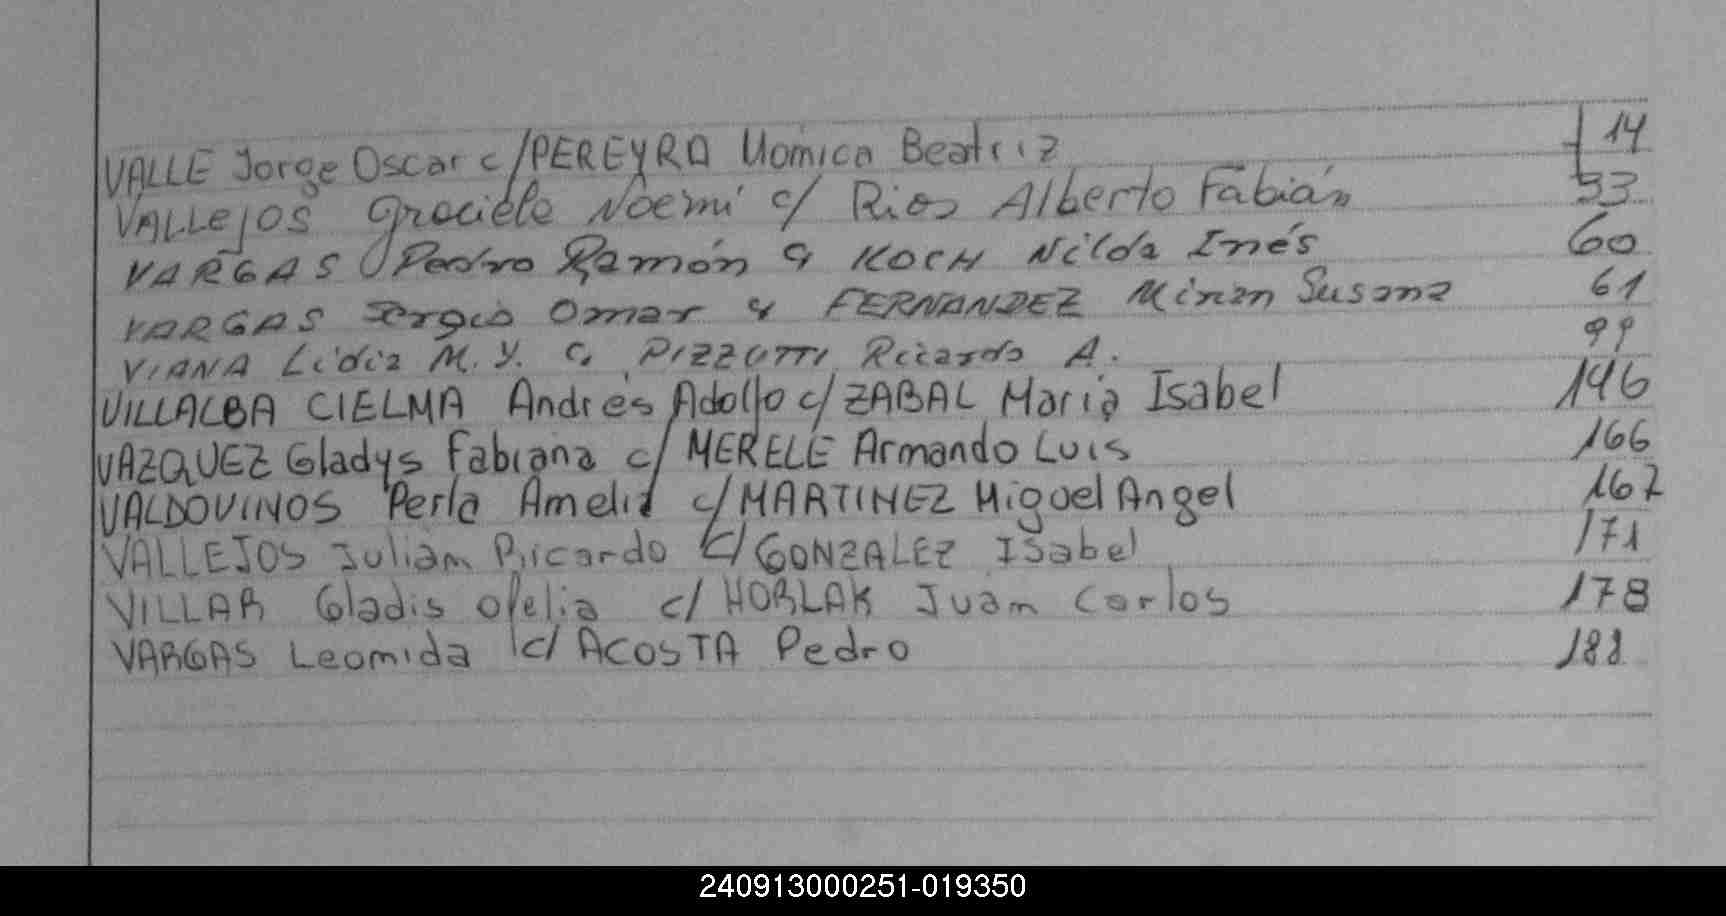 VALLE Jorge Oscar c/PEREYRA Monica Beatriz 14
VALLEJOS Graciela Noemí c/ Rios Alberto Fabián 53
VARGAS Pedro Ramón c/ KOCH Nilda Inés 60
VARGAS Sergio Omar c/ FERNANDEZ Mirian Susana 61
VIANA Lidia M. Y. c. PIZZUTTI Ricardo A. 99
VILLALBA CIELMA Andrés Adolfo c/ZABAL María Isabel 146
VAZQUEZ Gladys Fabiana c/ MERELE Armando Luis 166
VALDOVINOS Perla Amelia c/MARTINEZ Miguel Angel 167
VALLEJOS Julian Ricardo c/GONZALEZ Isabel 171
VILLAR Gladis Ofelia c/ HORLAK Juan Carlos 178
VARGAS Leonida c/ ACOSTA Pedro 188
240913000251-019350